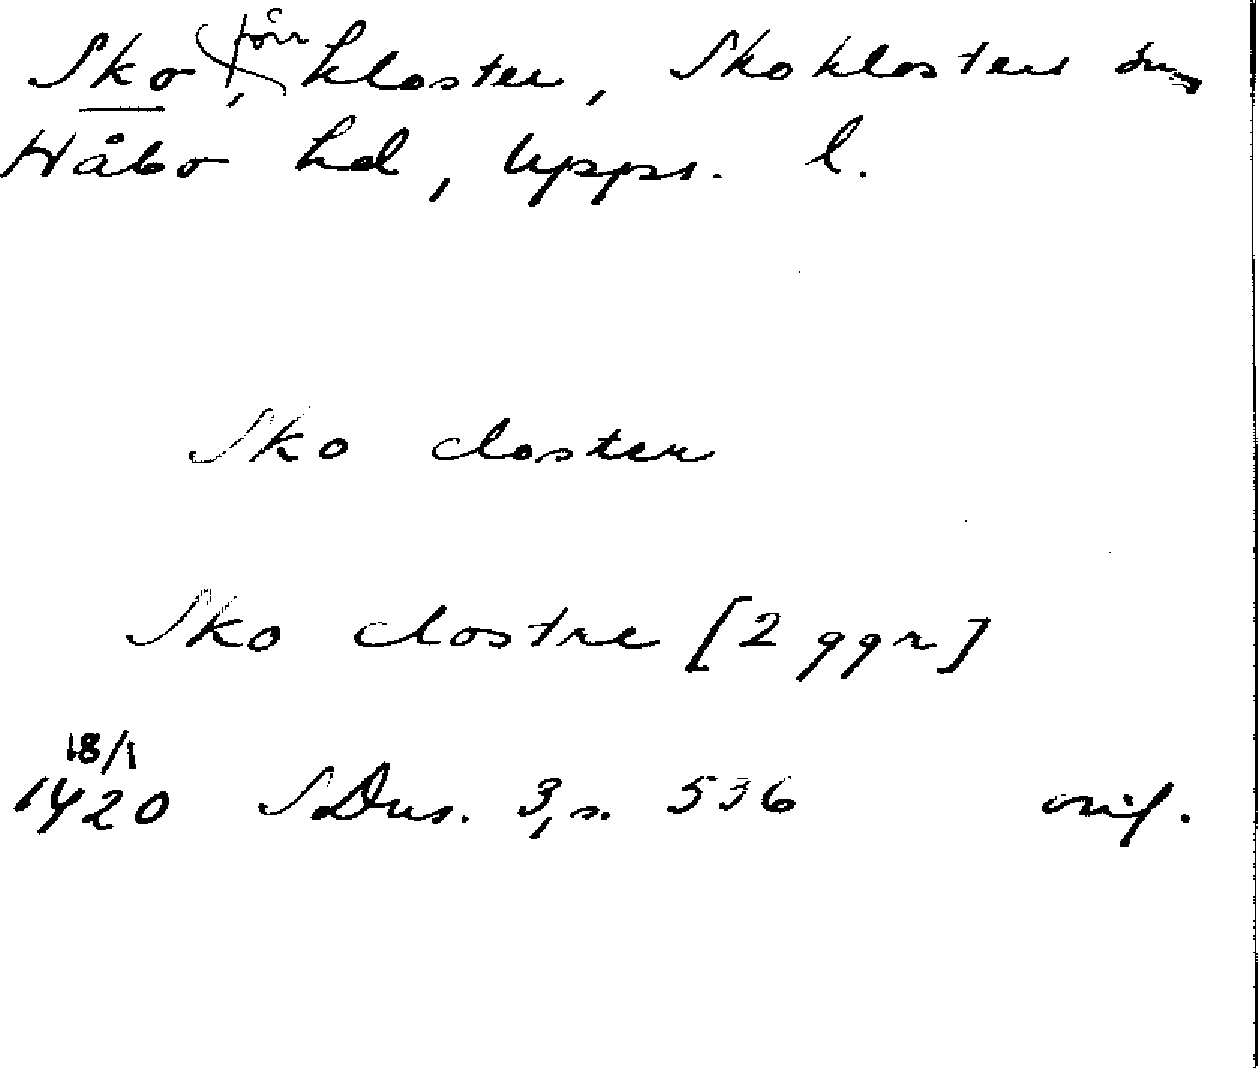 Sko, förr kloster, Skoklosters sn,
Håbo hd, Upps. l.
Sko closter
Sko clostre [2 ggr]
18/1
1420 SDns. 3, s. 536 orig.